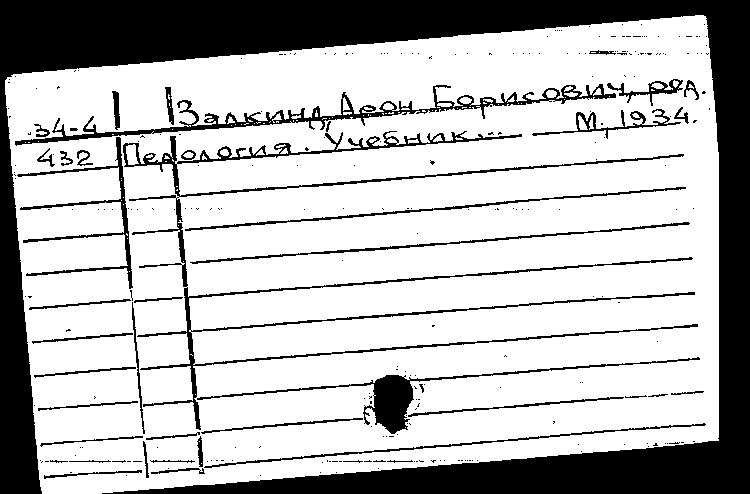 34-4 Залкинд, Арон Борисович, ред.
432 Педология. Учебник... — М, 1934.